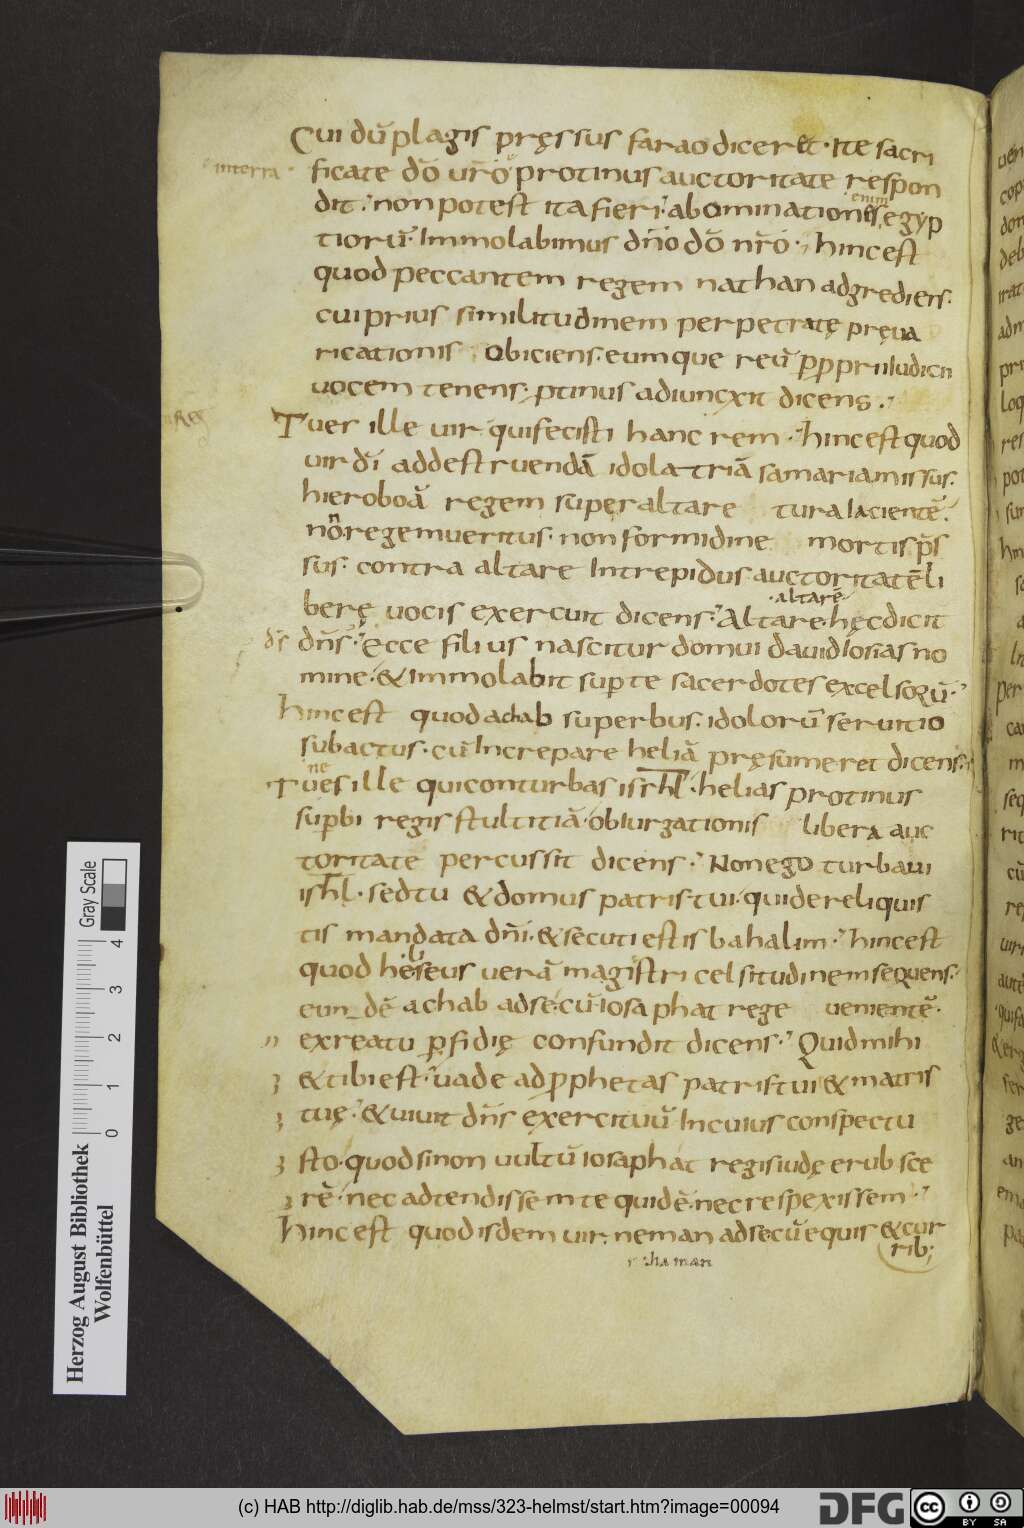 Cui dũ plagis pręssus farao diceret· Ite sacri
interra· ficate dõ ur̃o protinus auctoritate respon
enim
dit· non potest ita fieri· abominationes egyp
tiorũ· Immolabimus dño dõ nr̃o· hinc est
quod peccantem regem nathan adgrediens·
cui prius similitudinem perpetratę pręua
ricationis obiciens· eumque reũ ꝓprii Iudicii
uocem tenens· ꝓtinus adiuncxit dicens·
Reg
Tu er ille uir qui fecisti hanc rem· hinc est quod
uir dĩ ad destruendã idolatriã samariam issus·
hieroboã regem super altare tura Iacientẽ·
nõ regem ueritus· non formidine mortis p̃s
sus· contra altare Intrepidus auctoritatẽ li
·altare
berę uocis exercuit dicens· Altare· hęc dicit
ds̃ dñs· Ecce filius nascitur domui dauid Iosias no
mine· & Immolabit suꝑ te sacerdotes excelsoꝝ·
hinc est quod achab superbus· idolorũ seruitio
subactus· cũ Increpare heliã pręsumeret dicens·
ne
Tu es ille qui conturbas isrhl̃· helias protinus
suꝑbi regis stultitiã obIurgationis libera auc
toritate percussit dicens· Non ego turbaui
isrhl̃· sed tu & domus patris tui· qui dereliquis
tis mandata dñi· & secuti estis bahalim· hinc est
quod heliseus uerã magistri celsitudinem sequens·
eun dẽ achab ad se cũ iosaphat rege uenientẽ·
ex reatu ꝑfidię confundit dicens· Quid mihi
& tibi est· uade ad ꝓphetas patris tui & matris
tuę· & uiuit dñs exercituũ In cuius conspectu
sto· quod si non uultũ iosaphat regis iudę erubsce
rẽ· nec adtendissem te quidẽ· nec respexissem·
hinc est quod isdem uir· neman ad se cũ equis & cur
rib;
haman
Herzog August Bibliothek
Wolfenbüttel
Gray Scale
0 1 2 3 4
(c) HAB http://diglib.hab.de/mss/323-helmst/start.htm?image=00094
DFG
cc
BY SA